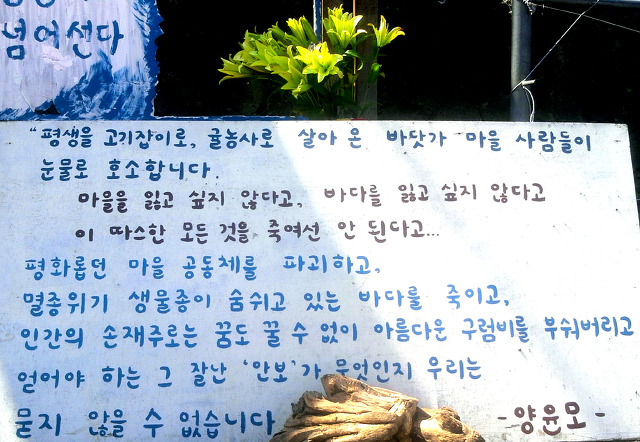 넘어선다
"평생을 고기잡이로, 귤농사로 살아 온 바닷가 마을 사람들이
눈물로 호소합니다.
마을을 잃고 싶지 않다고, 바다를 잃고 싶지 않다고
이 따스한 모든 것을 죽여선 안 된다고...
평화롭던 마을 공동체를 파괴하고,
멸종위기 생물종이 숨쉬고 있는 바다를 죽이고,
인간의 손재주로는 꿈도 꿀 수 없이 아름다운 구럼비를 부숴버리고
얻어야 하는 그 잘난 '안보'가 무엇인지 우리는
묻지 않을 수 없습니다
-양윤모-